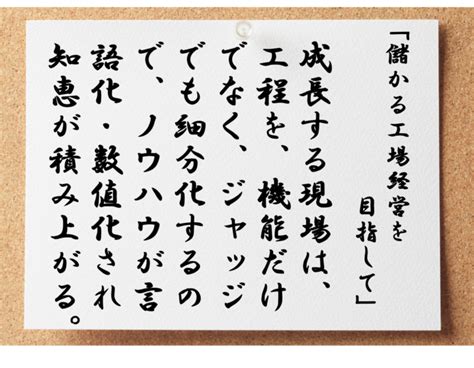 「儲かる工場経営を
目指して」
成長する現場は、
工程を、機能だけ
でなく、ジャッジ
でも細分化するの
で、ノウハウが言
語化・数値化され
知恵が積み上がる。